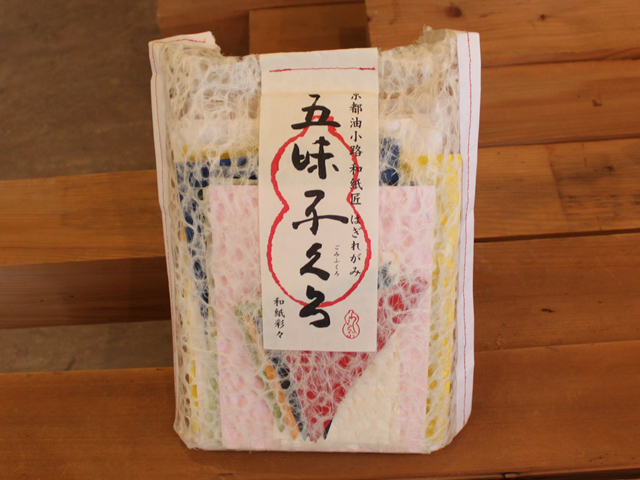 京都油小路 和紙匠 はぎれがみ
五味不くろ
ごみふくろ
和紙彩々